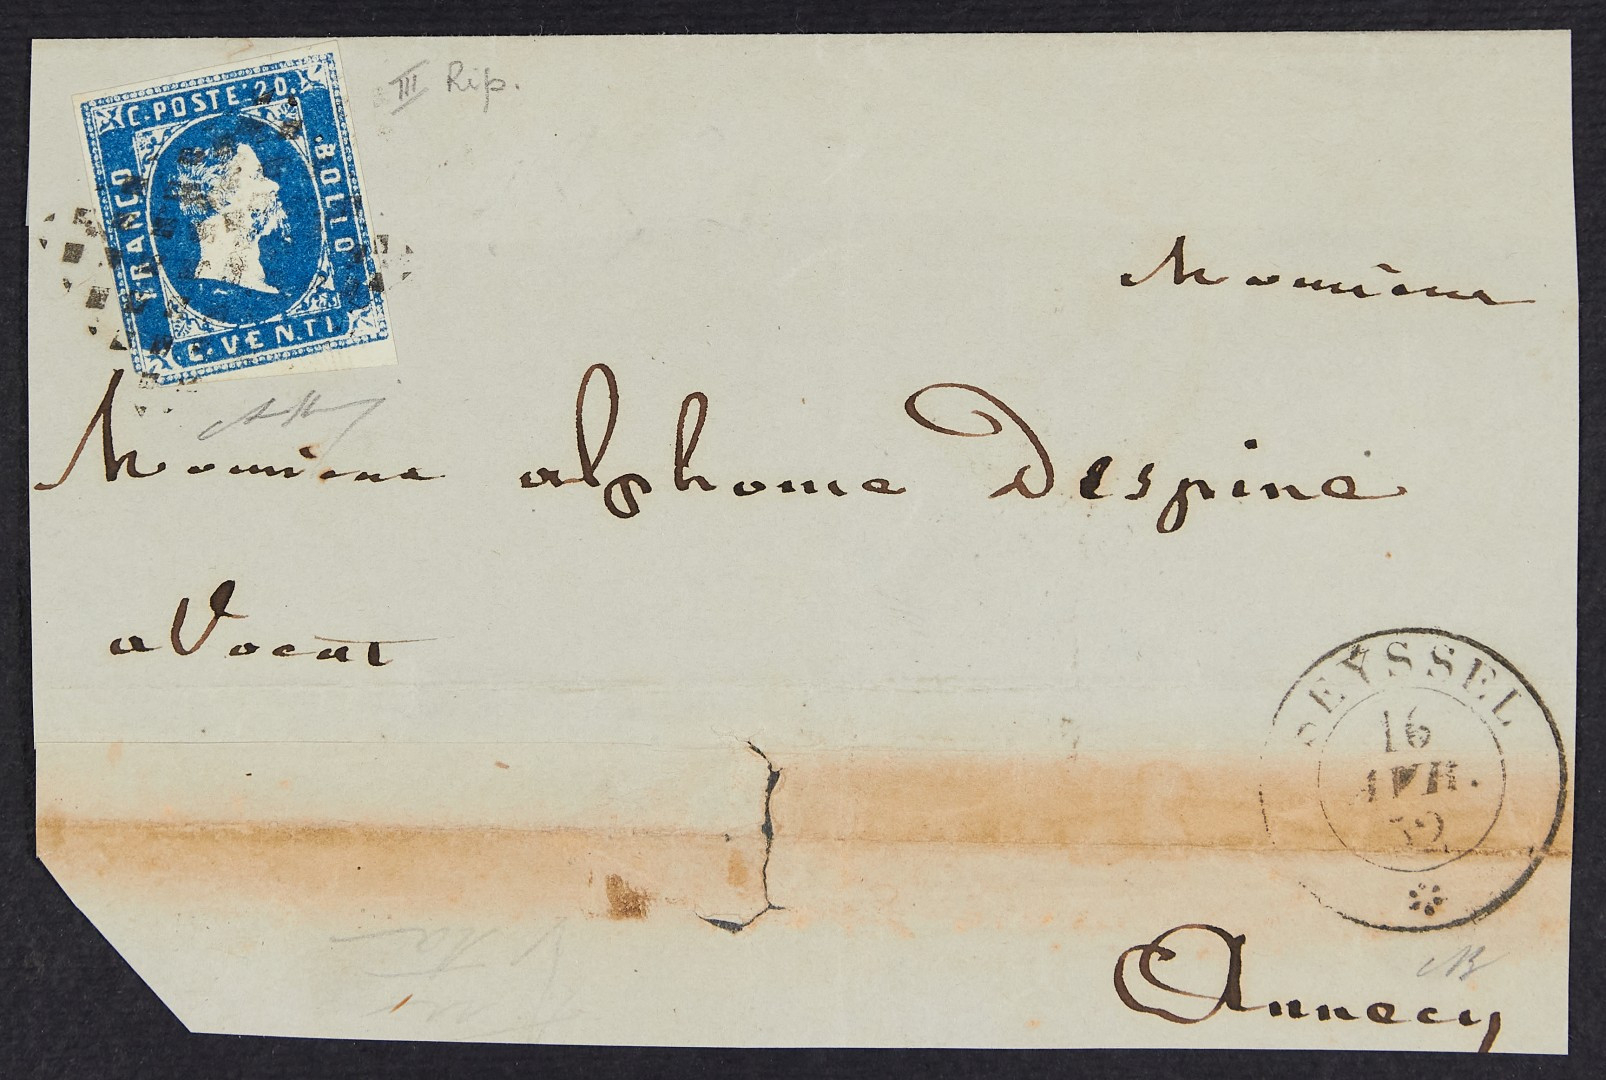 C. POSTE 20.
FRANCO
BOLLO
C. VENTI
III Rip.
Monsieur
Monsieur alphonse Despine
avocat
SEYSSEL
16
AVR.
52
Annecy